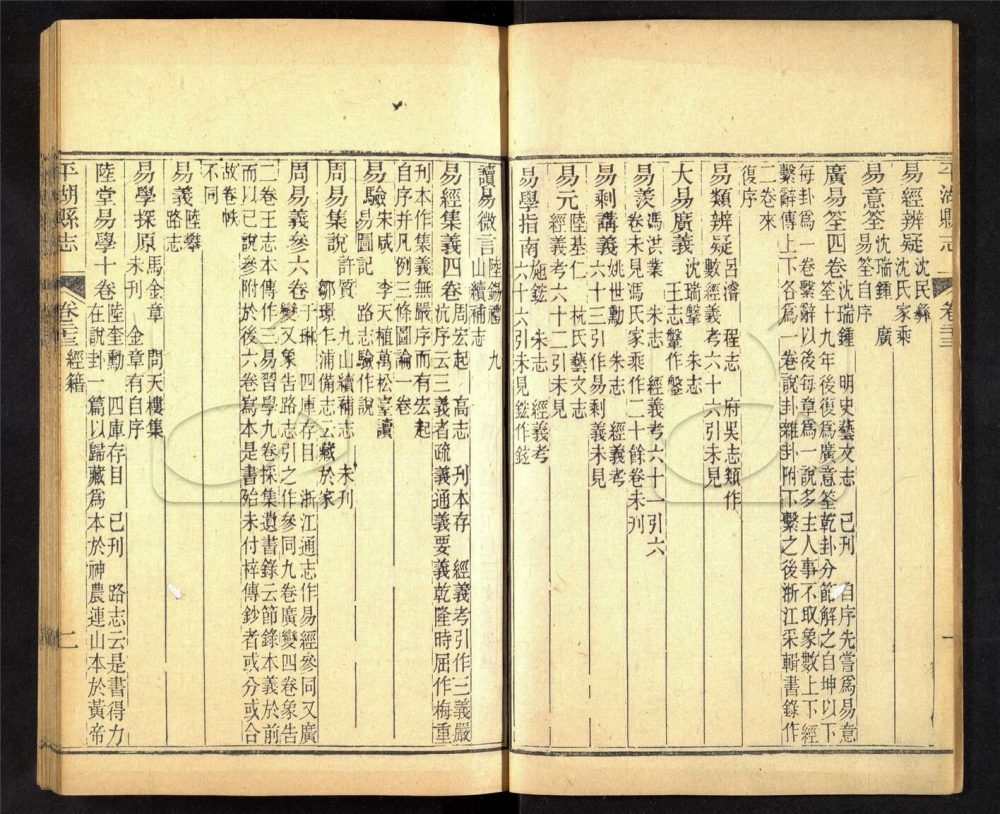 平湖縣志 卷二十三 一
易經辨疑 沈民彝 沈氏家乘
易意筌 沈瑞鍾 廣易筌自序
廣易筌四卷 沈瑞鍾 明史藝文志 已刊 自序先嘗爲易意
筌十九年後復爲廣意筌乾卦分節解之自坤以下
每卦爲一卷繫辭以後每章爲一說多主人事不取象數上下經
繫辭傳上下各爲一卷說卦雜卦附下繫之後浙江采輯書錄作
二卷來
復序
易類辨疑 呂濬 程志 府吳志類作
數經義考六十六引未見
大易廣義 沈瑞鑿 朱志
王志鑿作鑒
易羨 馮洪業 朱志 經義考六十一引六
卷未見馮氏家乘作二十餘卷未刊
易剩講義 姚世勳 朱志 經義考
六十三引作易剩義未見
易元 陸基仁 杭氏藝文志
經義考六十二引未見
易學指南 施鎡 朱志 經義考
六十六引未見鎡作鉉
讀易微言 陸錫禮 九
山續補志
易經集義四卷 周宏起 高志 刊本存 經義考引作三義嚴
沆序云三義者疏義通義要義乾隆時屈作梅重
刊本作集義無嚴序而有宏起
自序并凡例三條圖論一卷
易驗 朱咸 李天植萬松臺讀
易圖記 路志驗作說
周易集說 許質 九山續補志 未刊
鄒璟乍浦備志云藏於家
周易義參六卷 于琳 四庫存目 浙江通志作易經參同又廣
變又象告路志引之作參同九卷廣變四卷象告
二卷王志本傳作三易習學九卷採集遺書錄云節錄本義於前
而以己說參附於後六卷寫本是書殆未付梓傳鈔者或分或合
故卷帙
不同
易義 陸攀
路志
易學探原 馬金章 問天樓集
未刊 金章有自序
陸堂易學十卷 陸奎勳 四庫存目 已刊 路志云是書得力
在說卦一篇以歸藏爲本於神農連山本於黃帝
平湖縣志 卷二十三 經籍 二